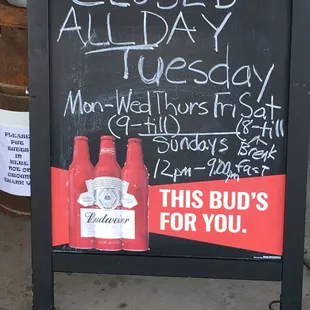 CLOSED
ALL DAY
Tuesday
Mon-Wed Thurs Fri Sat
(9-till) (8-till
Sundays Break
12pm-9:00pm fast
THIS BUD'S
FOR YOU.
Budweiser
PLEASE
PUT
BUTTS
IN
HERE
NOT ON
GROUND
THANK U